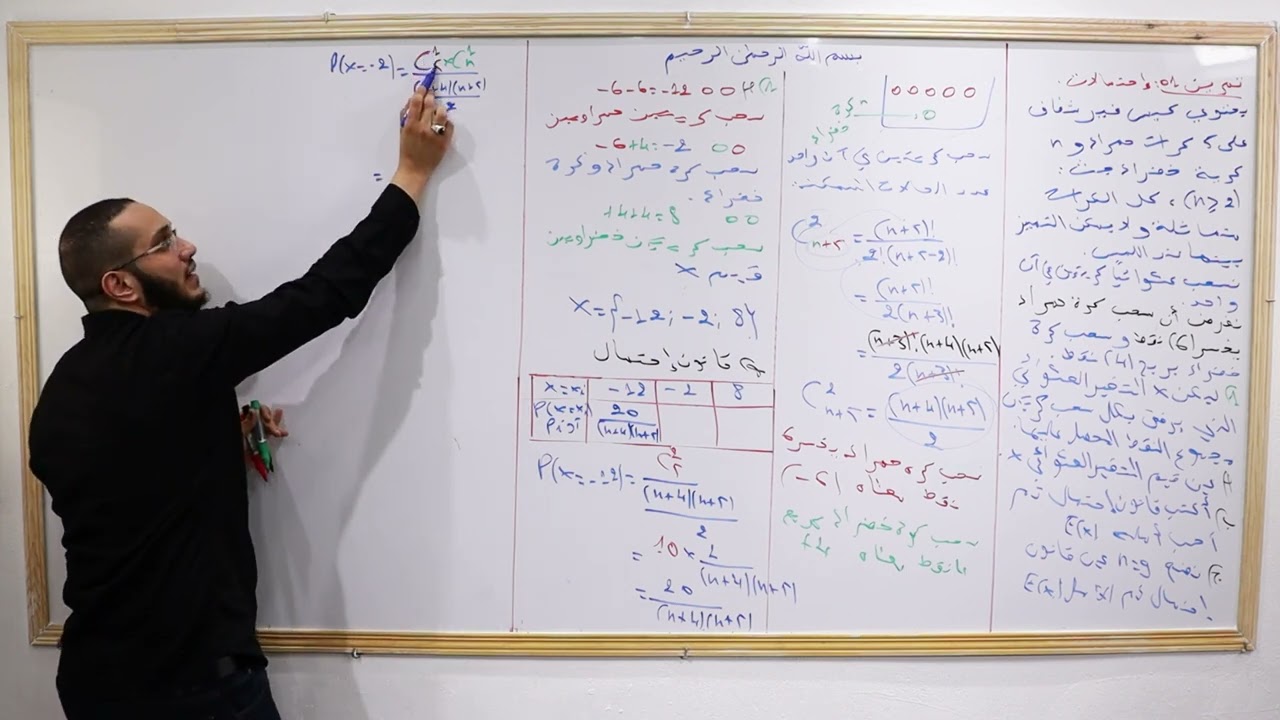 بسم الله الرحمن الرحيم
تمرين 01: احتمالات
يحتوي كيس غير شفاف
على 5 كرات حمراء و n
كرية خضراء حيث:
(n≥2)، كل الكرات
متماثلة ولا يمكن التمييز
بينها عند اللمس.
نسحب عشوائيًا كريتين في آن
واحد.
نفرض أن سحب كرة حمراء
يخسر (6) نقط وسحب كرة
خضراء يربح (4) نقط
ليكن X المتغير العشوائي
الذي يرفق بكل سحب كريتين
مجموع النقط المحصل عليها.
عين قيم المتغير العشوائي X.
أكتب قانون احتمال ثم
أحسب أمله E(X)
نضع n=9 عين قانون
احتمال ثم الأمل E(X)
O O O O O
n كرة
خضراء
سحب كرتين في آن واحد
عدد الحالات الممكنة:
C²ₙ₊₅ = (n+5)! / 2!(n+5-2)!
= (n+5)! / 2(n+3)!
= (n+3)!(n+4)(n+5) / 2(n+3)!
C²ₙ₊₅ = (n+4)(n+5) / 2
سحب كرة حمراء يخسر 6
نقط معناه (-6)
سحب كرة خضراء يربح
4 نقط معناه +4
-6-6=-12 O O
سحب كريتين حمراوين
-6+4=-2 O O
سحب كرة حمراء وكرة
خضراء.
+4+4=8 O O
سحب كريتين خضراوين
قيم X
X={-12; -2; 8}
قانون احتمال
X=xᵢ -12 -2 8
P(X=xᵢ) 20 / (n+4)(n+5)
P(X=-12) = C²₅ / ((n+4)(n+5) / 2)
= 10 × 2 / (n+4)(n+5)
= 20 / (n+4)(n+5)
P(X=-2) = C¹₅ × C¹ₙ / ((n+4)(n+5) / 2)
=